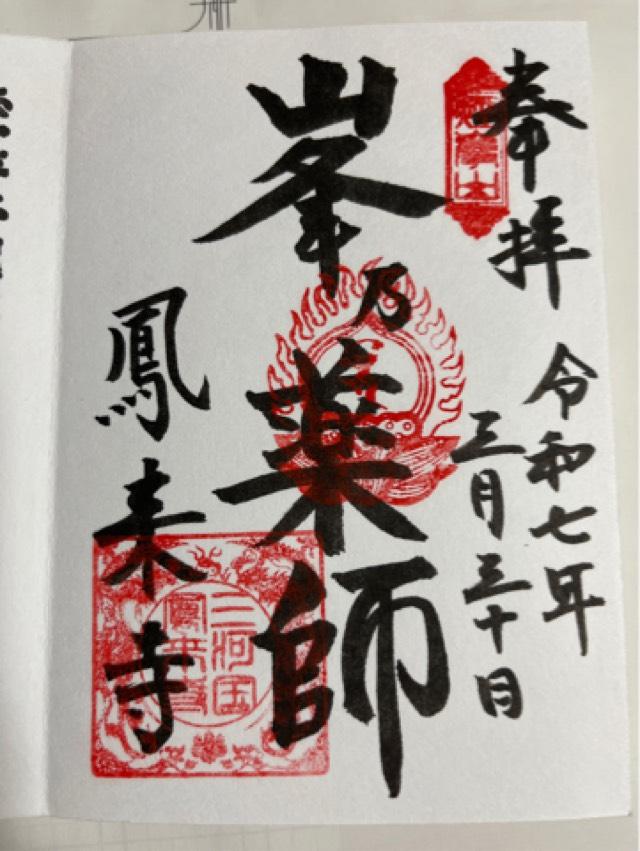 奉拝
令和七年
三月三十日
峯乃薬師
鳳来寺
三河国
鳳来寺